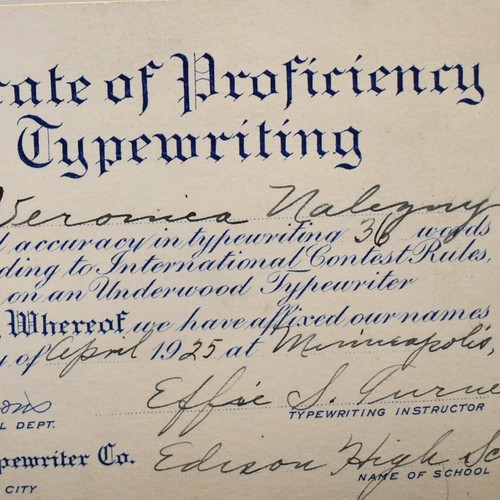 cate of Proficiency
Typewriting
Veronica Nalezny
d accuracy in typewriting 36 words
ding to International Contest Rules,
on an Underwood Typewriter
Whereof we have affixed our names
y of April 1925 at Minneapolis,
ons
Effie S. Turne
L DEPT.
TYPEWRITING INSTRUCTOR
pewriter Co.
Edison High Sc
CITY
NAME OF SCHOOL